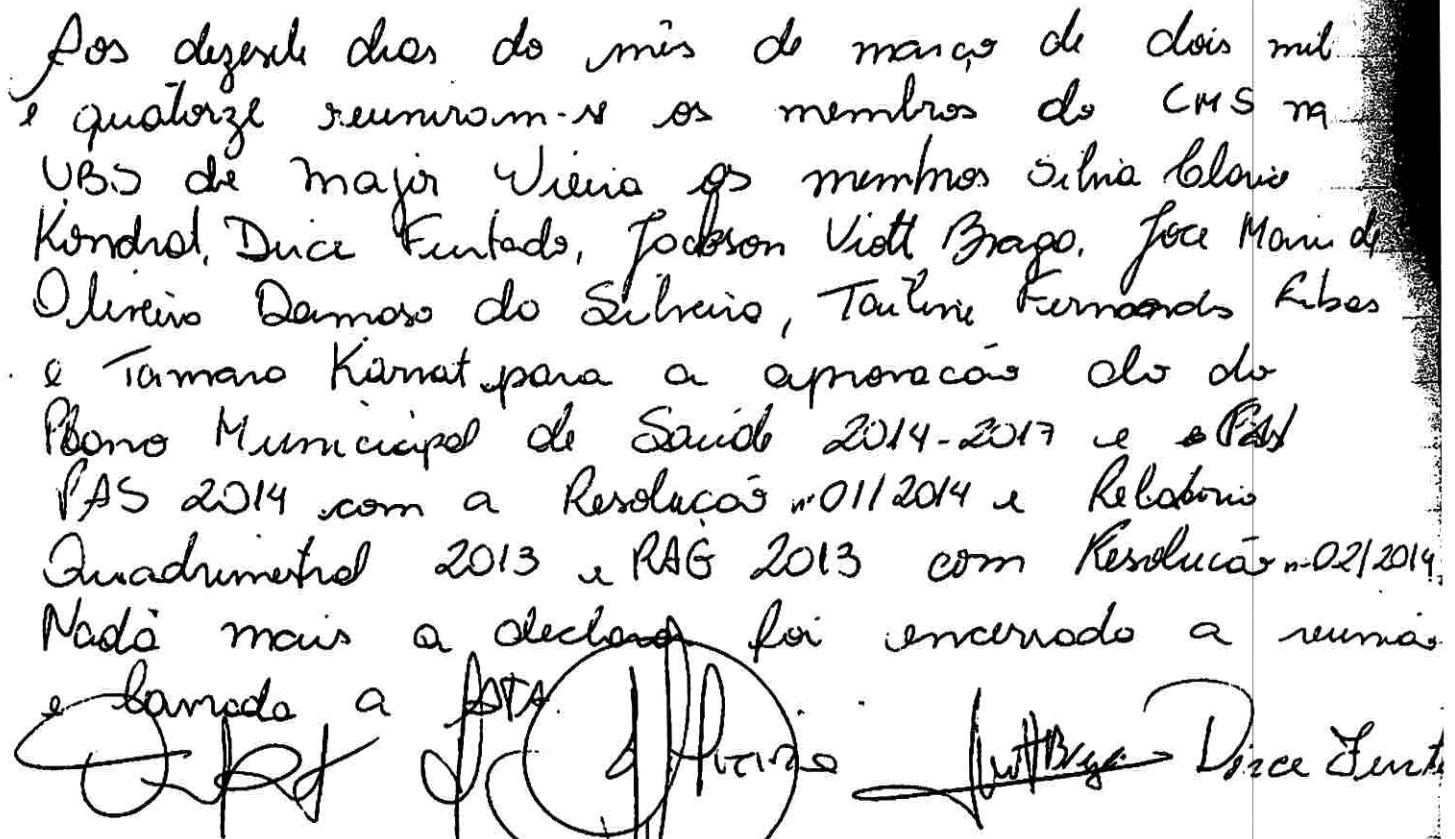 Aos dezesete dias do mês de março de dois mil
e quatorze reuniram-se os membros do CMS na
UBS de Major Vieira os membros Silvia Clavia
Kondrat, Dirce Furtado, Jackson Viott Braga, Joce Mari de
Oliveira Damaso da Silveira, Tailine Fernanda Ribas
e Tamara Karnat para a aprovação do do
Plano Municipal de Saúde 2014-2017 e
PAS 2014 com a Resolução nº 01/2014 e Relatorio
Quadrimestral 2013 e RAG 2013 com Resolução nº 02/2014.
Nada mais a declarar foi encerrado a reunião
e lavrada a ATA.
Dirce Furt